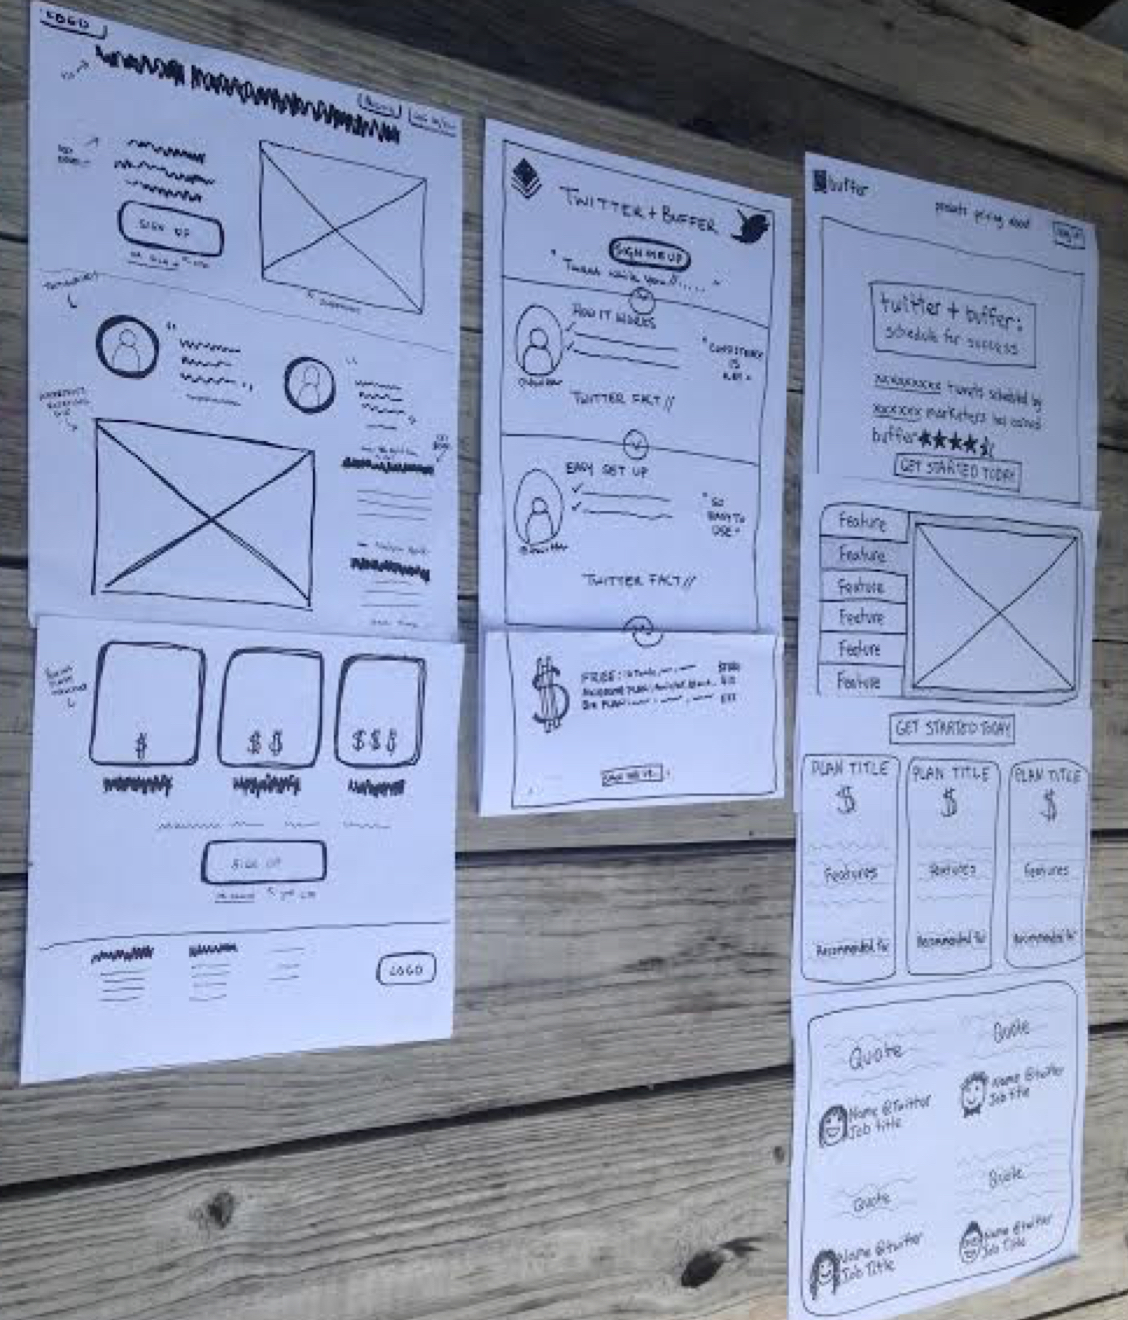 LOGO
SIGN UP
$
$ $
$ $ $
SIGN UP
LOGO
TWITTER + BUFFER
SIGN ME UP
"Tweet while you
HOW IT WORKS
"CONSISTENCY
IS
KEY"
TWITTER FACT//
EASY SET UP
"SO
EASY TO
USE"
TWITTER FACT//
$
FREE:
buffer
products pricing about
twitter + buffer:
schedule for success
xxxxxxxxx tweets scheduled by
xxxxxx marketers has earned
buffer ★★★★
GET STARTED TODAY
Feature
Feature
Feature
Feature
Feature
Feature
GET STARTED TODAY
PLAN TITLE
$
Features
Recommended for
PLAN TITLE
$
Features
Recommended for
PLAN TITLE
$
Features
Recommended for
Quote
Name @Twitter
Job Title
Quote
Name @twitter
Job title
Quote
Name @twitter
Job Title
Quote
Name @twitter
Job Title